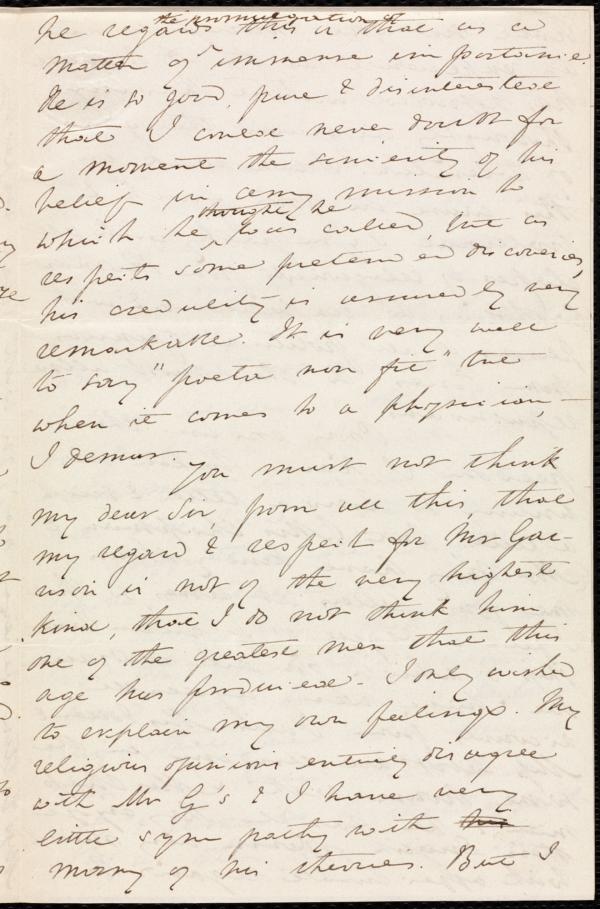 the promulgation of
he regards this or that as a
matter of immense importance.
He is so good, pure & disinterested
that I could never doubt for
a moment the sincerity of his
belief in any mission to
thought he
which he was called, but as
respects some pretended discoveries,
his credulity is assuredly very
remarkable. It is very well
to say "poeta non fit" but
when it comes to a physician,—
I demur.
You must not think
my dear Sir, from all this, that
my regard & respect for Mr Gar-
rison is not of the very highest
kind, that I do not think him
one of the greatest men that this
age has produced. I only wished
to explain my own feelings. My
religious opinions entirely disagree
with Mr G's & I have very
little sympathy with his
many of his theories. But I